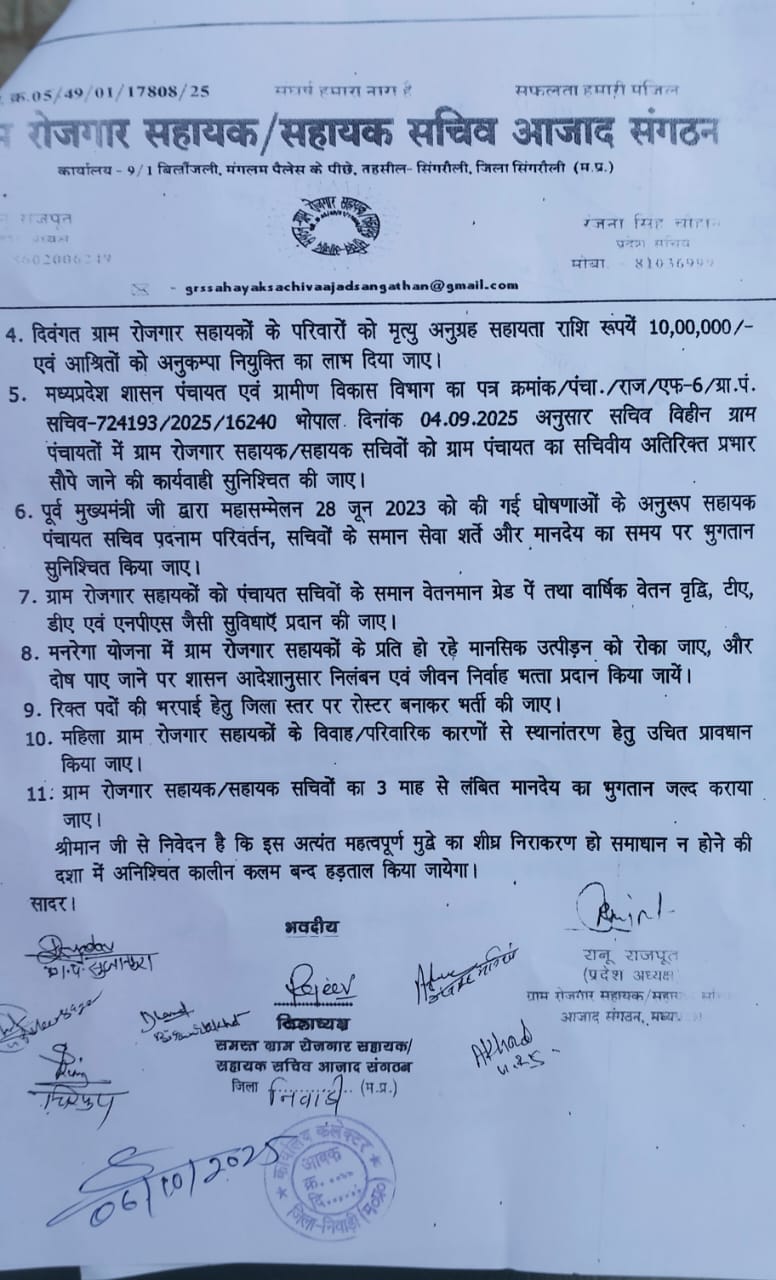 क्र.05/49/01/17808/25 संघर्ष हमारा नारा है सफलता हमारी मंजिल
रोजगार सहायक/सहायक सचिव आजाद संगठन
कार्यालय - 9/1 बिलौंजली, मंगलम पैलेस के पीछे, तहसील- सिंगरौली, जिला सिंगरौली (म.प्र.)
राजपूत
रंजना सिंह चौहान
प्रदेश सचिव
मोबा. - 81036999
- grssahayaksachivaajadsangathan@gmail.com
4. दिवंगत ग्राम रोजगार सहायकों के परिवारों को मृत्यु अनुग्रह सहायता राशि रूपयें 10,00,000/-
एवं आश्रितों को अनुकम्पा नियुक्ति का लाभ दिया जाए।
5. मध्यप्रदेश शासन पंचायत एवं ग्रामीण विकास विभाग का पत्र क्रमांक/पंचा./राज/एफ-6/ग्रा.पं.
सचिव-724193/2025/16240 भोपाल दिनांक 04.09.2025 अनुसार सचिव विहीन ग्राम
पंचायतों में ग्राम रोजगार सहायक/सहायक सचिवों को ग्राम पंचायत का सचिवीय अतिरिक्त प्रभार
सौपे जाने की कार्यवाही सुनिश्चित की जाए।
6. पूर्व मुख्यमंत्री जी द्वारा महासम्मेलन 28 जून 2023 को की गई घोषणाओं के अनुरूप सहायक
पंचायत सचिव प्रदनाम परिवर्तन, सचिवों के समान सेवा शर्ते और मानदेय का समय पर भुगतान
सुनिश्चित किया जाए।
7. ग्राम रोजगार सहायकों को पंचायत सचिवों के समान वेतनमान ग्रेड पें तथा वार्षिक वेतन वृद्वि, टीए,
डीए एवं एनपीएस जैसी सुविधाऍ प्रदान की जाए।
8. मनरेगा योजना में ग्राम रोजगार सहायकों के प्रति हो रहे मानसिक उत्पीड़न को रोका जाए, और
दोष पाए जाने पर शासन आदेशानुसार निलंबन एवं जीवन निर्वाह भत्ता प्रदान किया जायें।
9. रिक्त पदों की भरपाई हेतु जिला स्तर पर रोस्टर बनाकर भर्ती की जाए।
10. महिला ग्राम रोजगार सहायकों के विवाह/परिवारिक कारणों से स्थानांतरण हेतु उचित प्रावधान
किया जाए।
11: ग्राम रोजगार सहायक/सहायक सचिवों का 3 माह से लंबित मानदेय का भुगतान जल्द कराया
जाए।
श्रीमान जी से निवेदन है कि इस अत्यंत महत्वपूर्ण मुद्वे का शीघ्र निराकरण हो समाधान न होने की
दशा में अनिश्चित कालीन कलम बन्द हड़ताल किया जायेगा।
सादर।
भवदीय
Rajeev
जिलाध्यक्ष
समस्त ग्राम रोजगार सहायक/
सहायक सचिव आजाद संगठन
जिला निवाडी (म.प्र.)
रानू राजपूत
(प्रदेश अध्यक्ष
ग्राम रोजगार सहायक/सहायक
आजाद संगठन, मध्य
06/10/2025
कार्यालय कलेक्टर
आवक
क्र.....
दि......
जिला-निवाड़ी (म०प्र०)